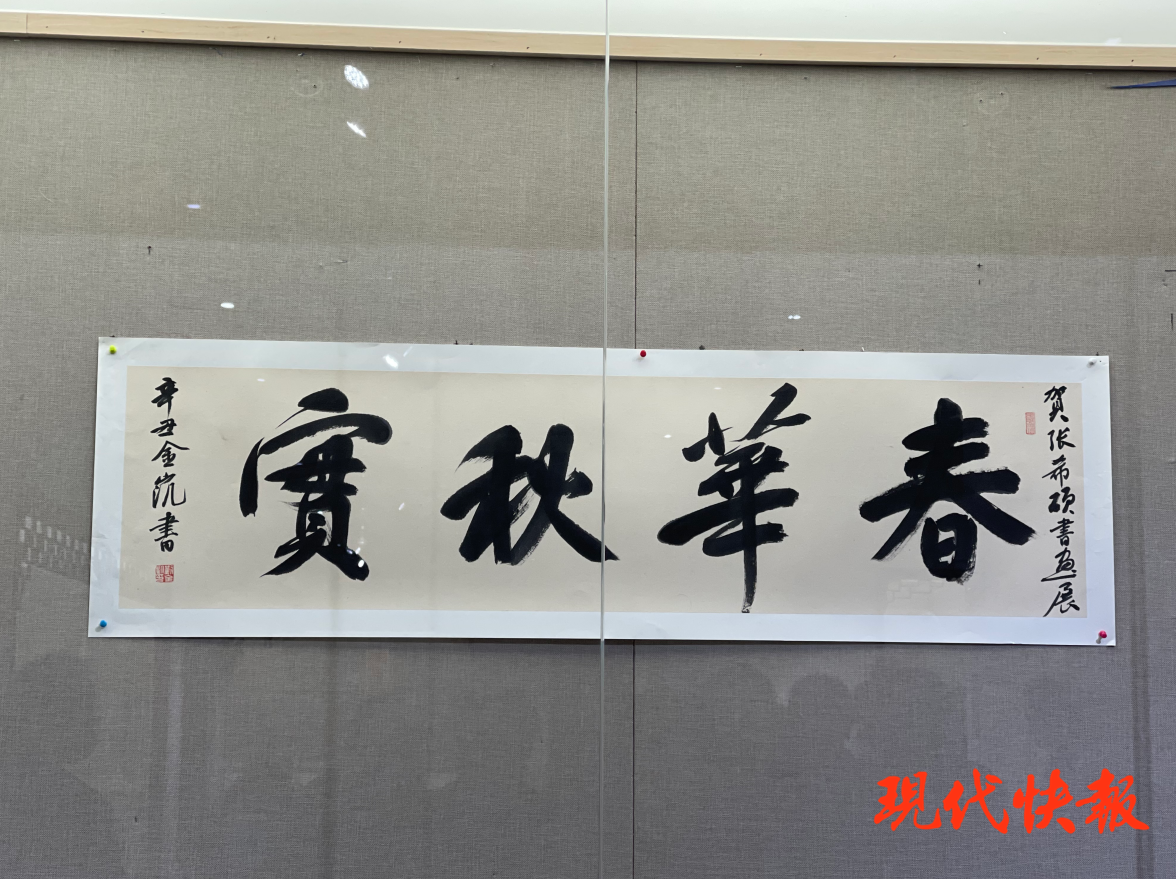 賀张希硕書画展
春華秋實
辛丑金沉書
現代快報